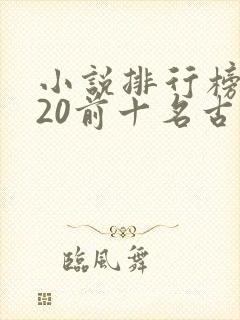 小說排行榜
20前十名古
臨風舞